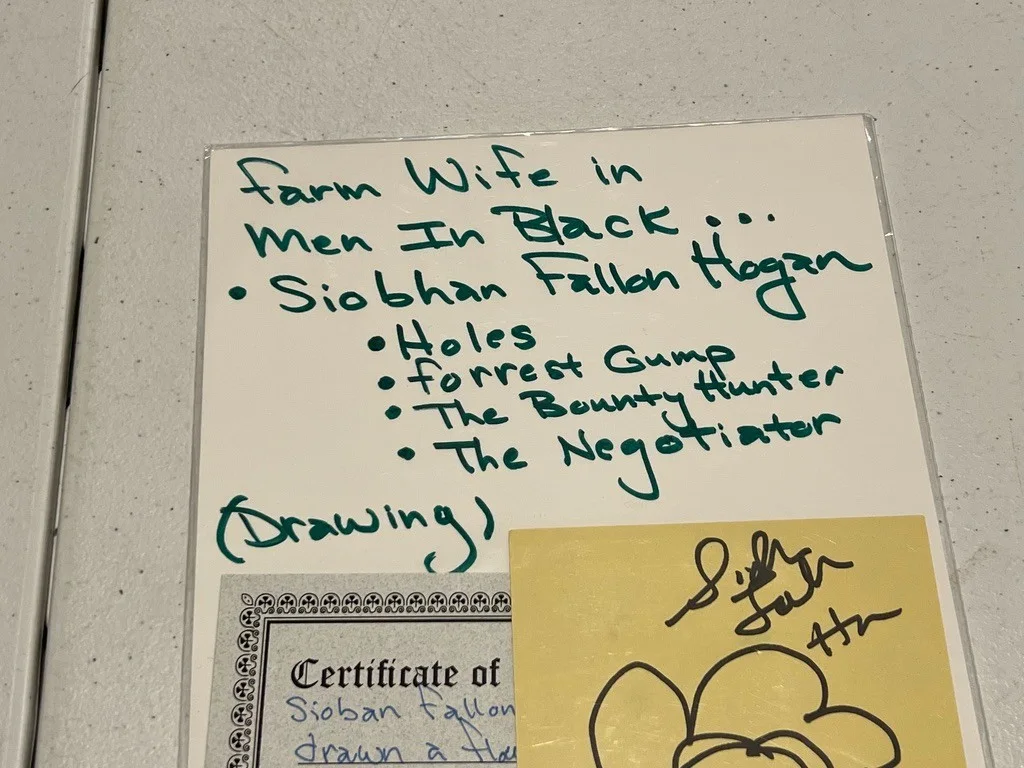 Farm Wife in
Men In Black ...
• Siobhan Fallon Hogan
• Holes
• Forrest Gump
• The Bounty Hunter
• The Negotiator
(Drawing)
Certificate of
Sioban Fallon
drawn a